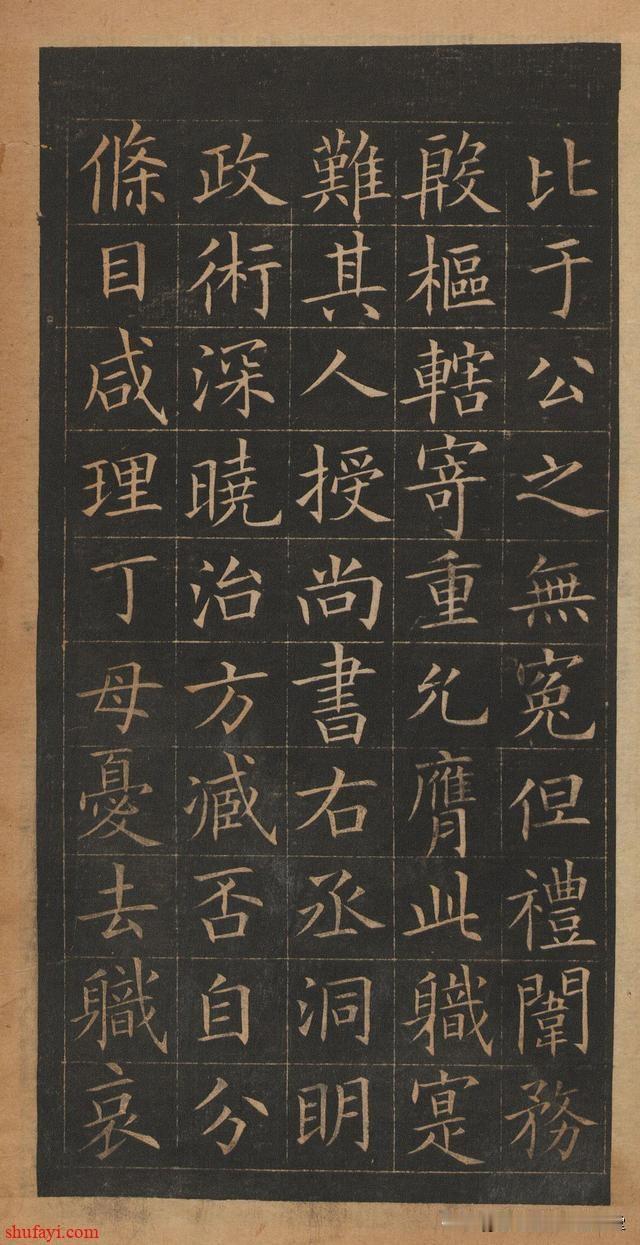 比于公之無寃但禮闈務
殷樞轄寄重允膺此軄寔
難其人授尚書右丞洞明
政術深曉治方臧否自分
條目咸理丁母憂去軄哀
shufayi.com